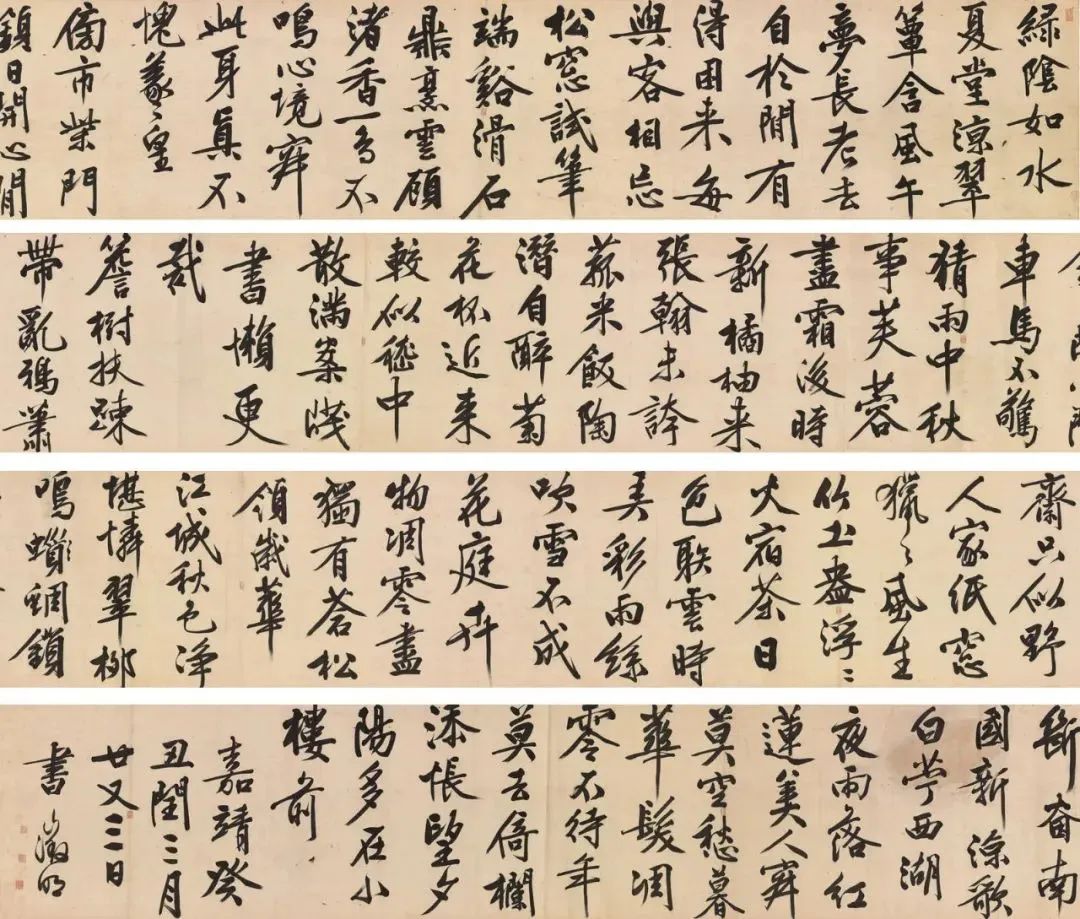 綠陰如水
夏堂涼翠
簟含風午
夢長老去
自於閒有
得困来每
與客相忘
松窓試筆
端谿滑石
鼎烹雲顧
渚香一鳥不
鳴心境寂
此身真不
愧羲〻皇
傍市柴門
鎖日開心閒
車馬不驚
猜雨中秋
事芙蓉
盡霜後時
新橘柚来
張翰未誇
菰米飯陶
潛自醉菊
花杯近来
較似嵇中
散滿案牋
書懶更
裁
簷樹扶疎
帶亂鴉蕭
齋只似野
人家紙窓
獵〻風生
竹土盎浮〻
火宿茶日
色聫雲時
弄彩雨絲
吹雪不成
花庭卉
物凋零盡
獨有蒼松
領歲華
江城秋色淨
堪憐翠柳
鳴蜩鎖
斷南
國新涼歌
白苧西湖
夜雨落紅
蓮美人寂
莫空愁暮
華髮凋
零不待年
莫去倚欄
添悵望夕
陽多在小
樓前
嘉靖癸
丑閏三月
廿又三日
徵明
書